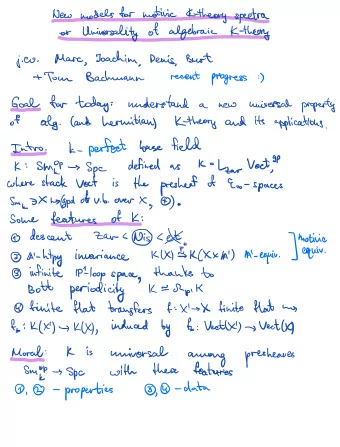 New models for motivic K-theory spectra
or Universality of algebraic K-theory
j.w. Marc, Joachim, Denis, Burt
+ Tom Bachmann recent progress :)
Goal for today: understand a new universal property
of alg. (and hermitian) K-theory and its applications.
Intro: k - perfect base field
K: Sm_k^op → Spc defined as K = L_Zar Vect^gp
where stack Vect is the presheaf of E∞-spaces
Sm_k ∋ X ↦ (gpd of v.b. over X, ⊕).
Some features of K:
① descent Zar < Nis <
② A¹-htpy invariance K(X) ≃ K(X×A¹) A¹-equiv.
] motivic equiv.
③ infinite P¹-loop space, thanks to
Bott periodicity K ≃ Ω_P¹ K
④ finite flat transfers f: X'→X finite flat ⇝
f_*: K(X') → K(X), induced by f_*: Vect(X') → Vect(X)
Moral: K is universal among presheaves
Sm_k^op → Spc with these features
①, ② - properties ③, ④ - data